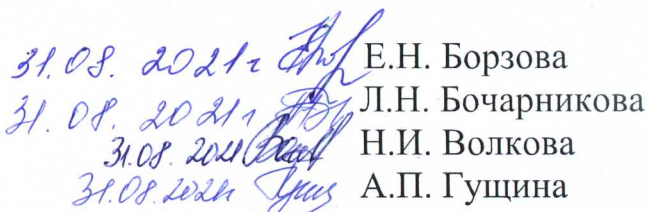 31.08. 2021г Е.Н. Борзова
31.08. 2021г Л.Н. Бочарникова
31.08. 2021 Н.И. Волкова
31.08.2021г А.П. Гущина